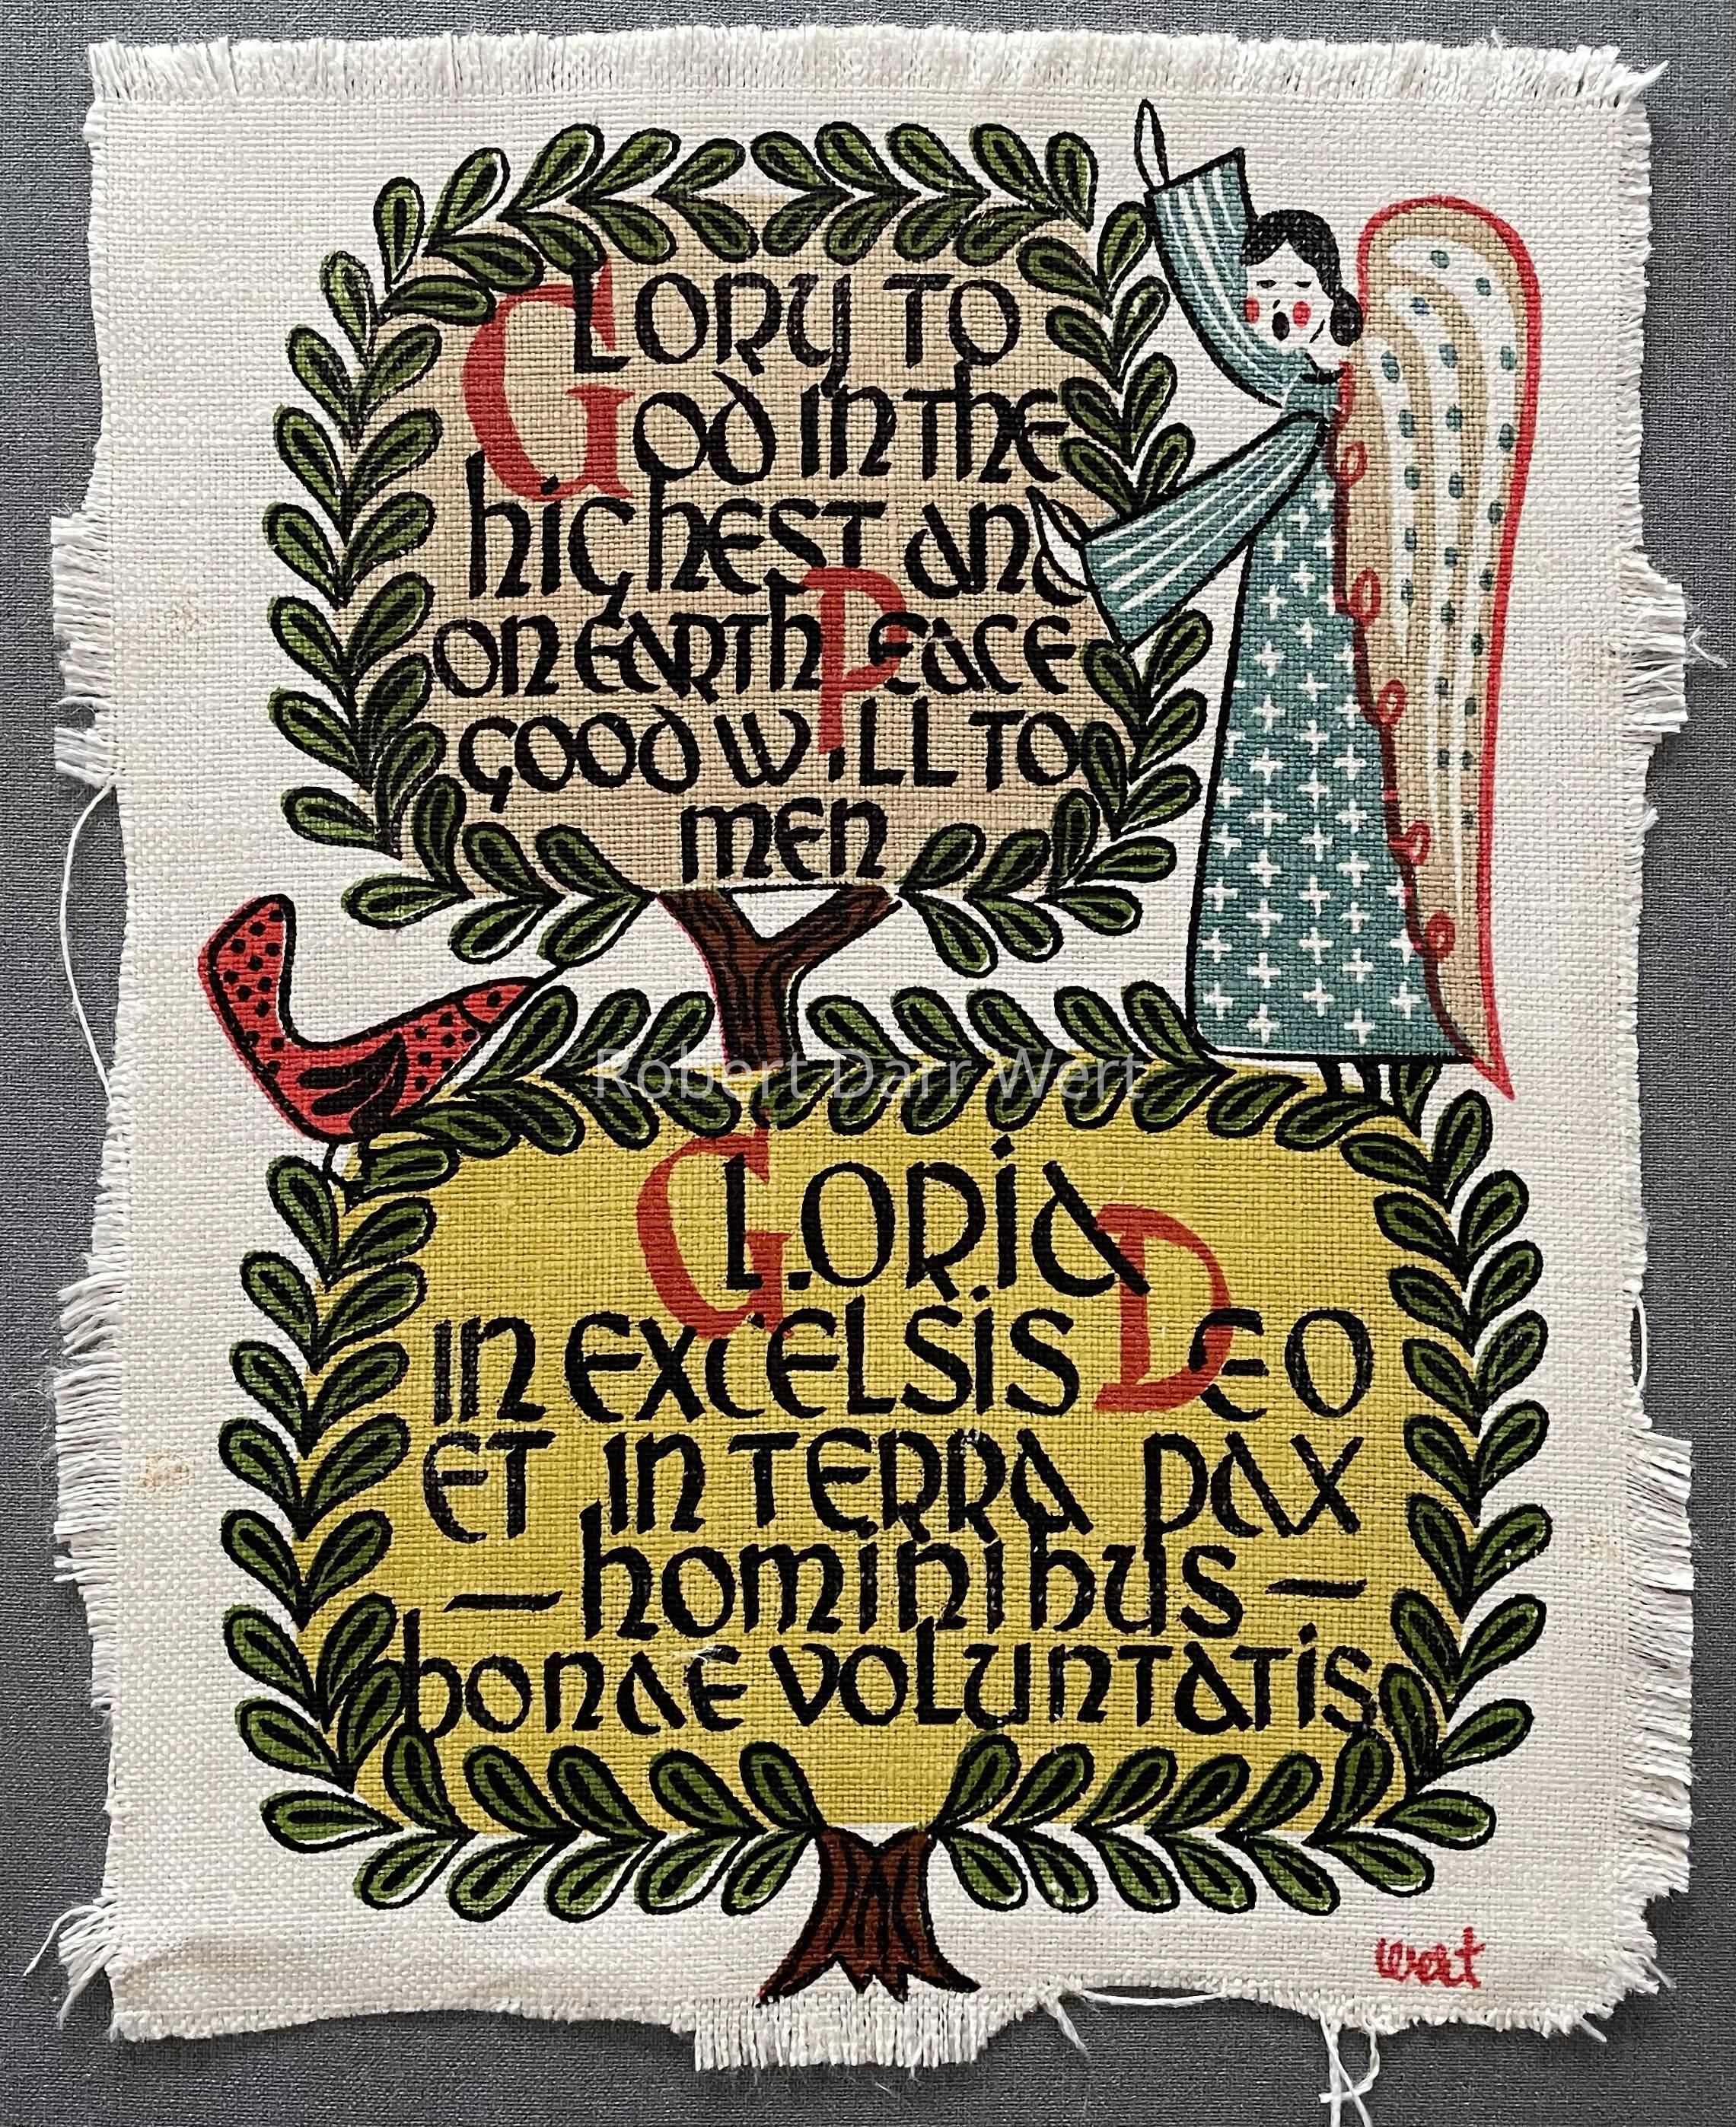 GLORY TO
GOD IN THE
HIGHEST AND
ON EARTH PEACE
GOOD WILL TO
MEN
Robert Darr Wert
GLORIA
IN EXCELSIS DEO
ET IN TERRA PAX
— HOMINIBUS —
BONAE VOLUNTATIS
Wert